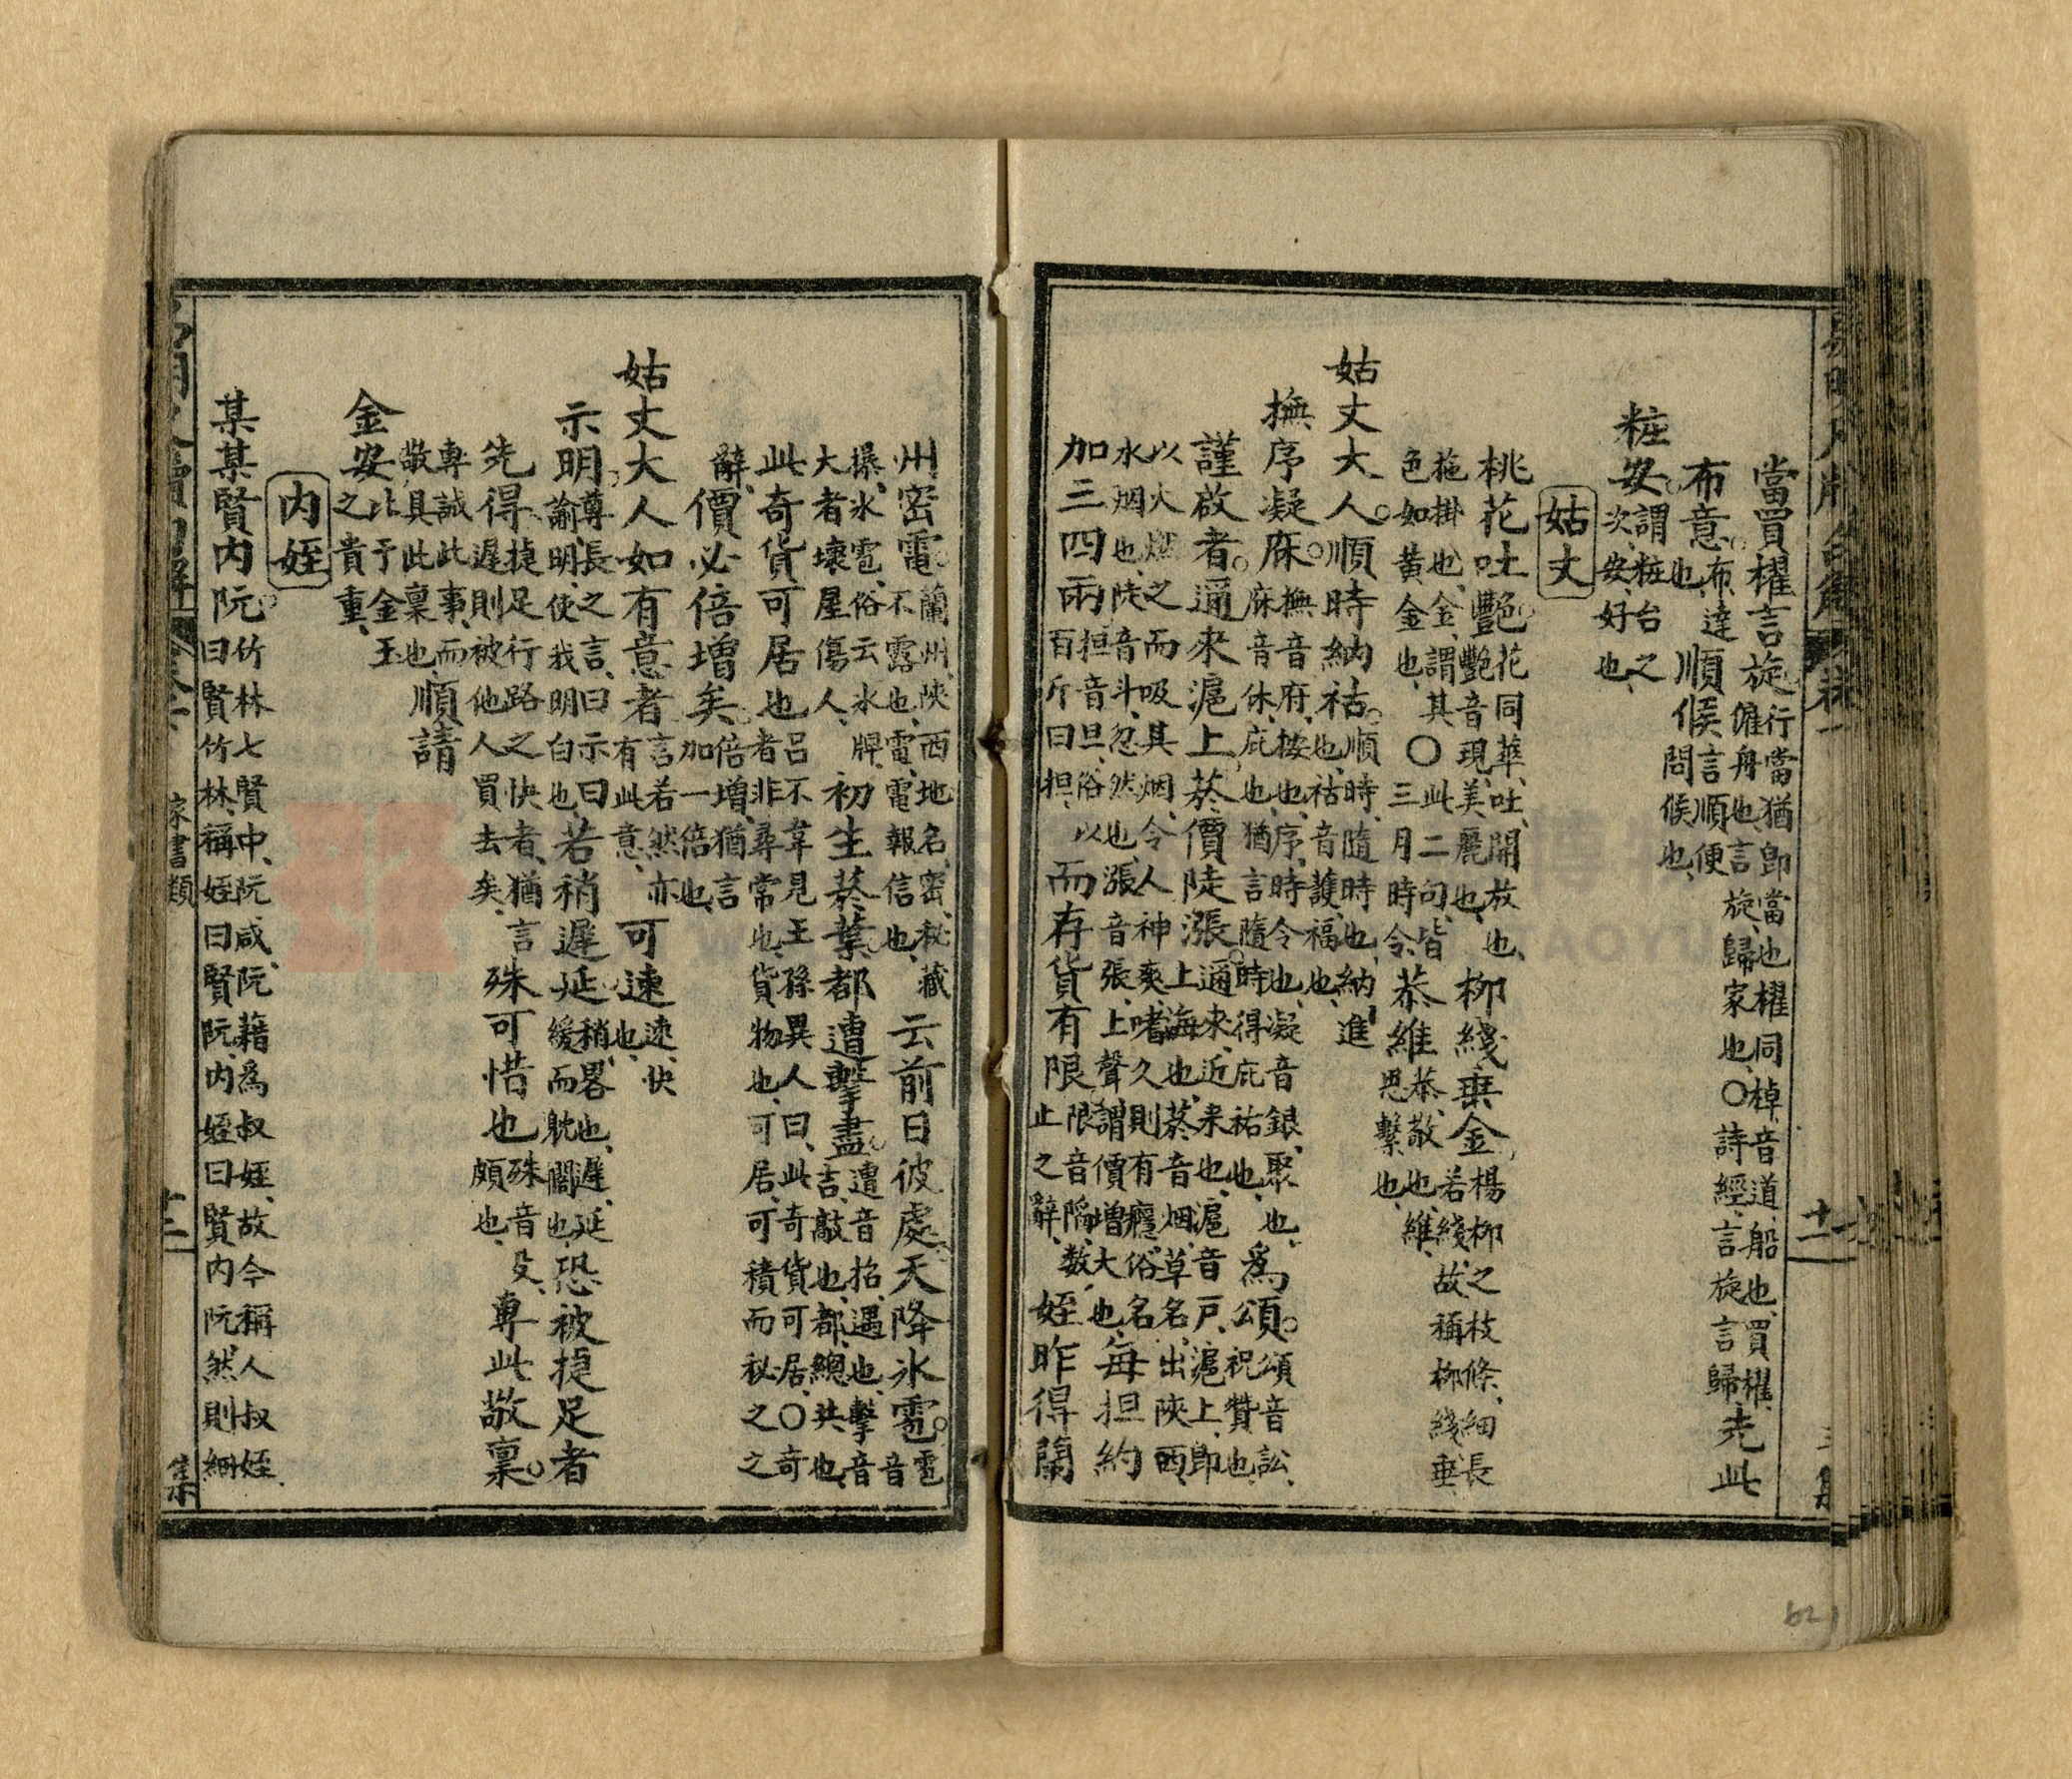 當買櫂言旋行當猶卽當也櫂同棹音道船也買櫂僱舟也言旋歸家也○詩經言旋言歸先此
布意布達也順候言順便問候也
粧安謂粧台之次安好也
姑丈
桃花吐艷花同華吐開放也艷音現美麗也柳綫垂金楊柳之枝條細長若綫故稱柳綫垂
拖掛也金謂其色如黃金也○此二句皆三月時令恭維恭敬也維思繫也
姑丈大人順時納祜順時隨時也納進也祜音護福也
撫序凝庥撫音府按也序時令也凝音銀聚也庥音休庇也猶言隨時得庇祐也爲頌頌音訟祝贊也
謹啟者邇來滬上菸價陡漲邇來近来也滬音戶滬上卽上海也菸音烟草名出陝西
以火烟之而吸其烟令人神爽嗜久則有癮俗名水烟也陡音斗忽然也漲音張上聲謂價增大也每担約
加三四兩担音旦俗以百斤曰担而存貨有限限音陷数止之辭姪昨得蘭
州密電蘭州陝西地名密秘藏不露也電電報信也云前日彼處天降氷雹雹音
撲氷雹俗云氷牌大者壞屋傷人初生菸葉都遭擊盡遭音招遇也擊音吉敲也都總共也
此奇貨可居也呂不韋見王孫異人曰此奇貨可居○奇者非尋常也貨物也可居可積而秘之之
辭價必倍增矣倍增猶言加一倍也
姑丈大人如有意者言若然亦有此意可速速快也
示明尊長之言曰示曰諭明使我明白也若稍遲延稍畧也遲延緩而躭擱也恐被捷足者
先得捷足行路之快者猶言遲則被他人買去矣殊可惜也殊音殳頗也專此敬禀
專誠此事而敬具此禀也順請
金安比予金玉之貴重
内姪
某某賢内阮竹林七賢中阮咸阮藉為叔姪故今稱人叔姪曰賢竹林稱姪曰賢阮内姪曰賢内阮然則綑
家書類